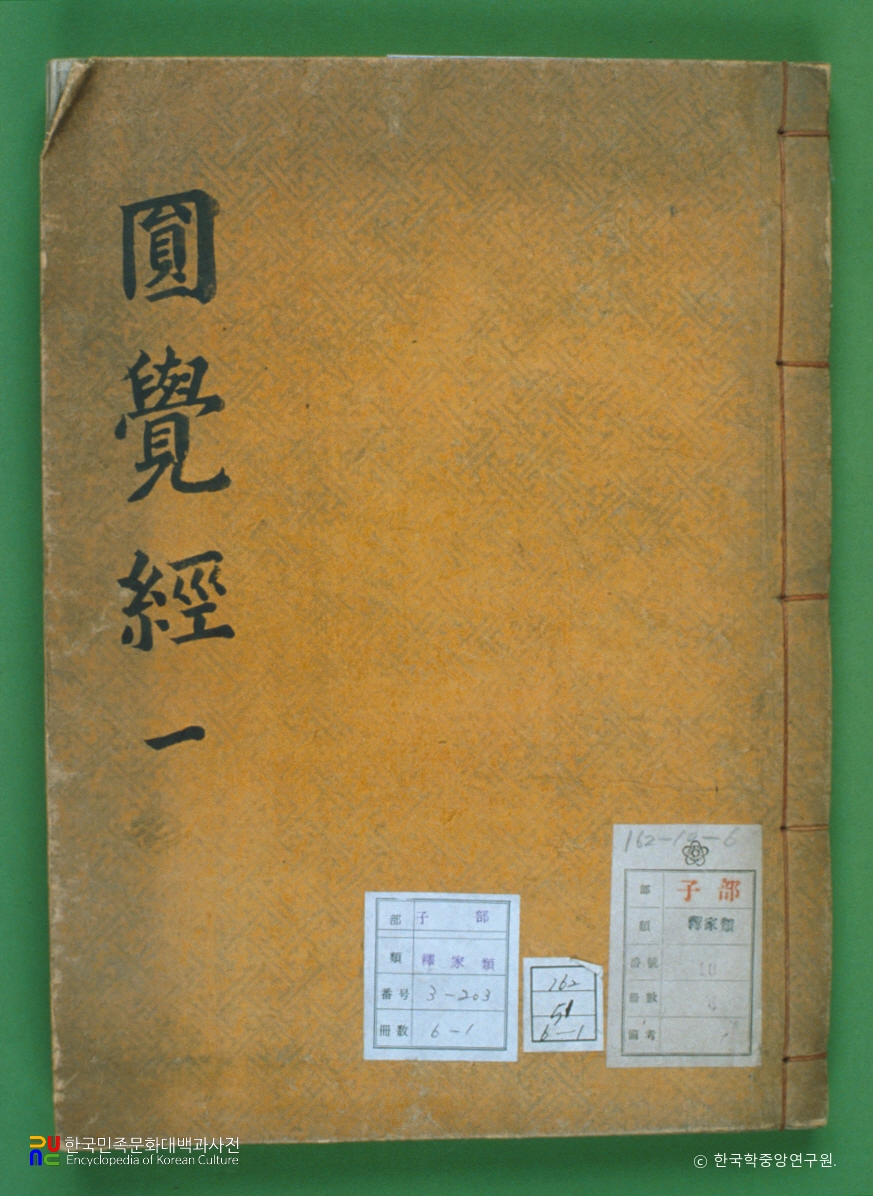 圓覺經 一
部 子 部
類 釋家類
番号 3-203
冊数 6-1
162
51
6-1
部 子部
類 釋家類
番號 10
冊數
備考
한국민족문화대백과사전
Encyclopedia of Korean Culture
ⓒ 한국학중앙연구원.